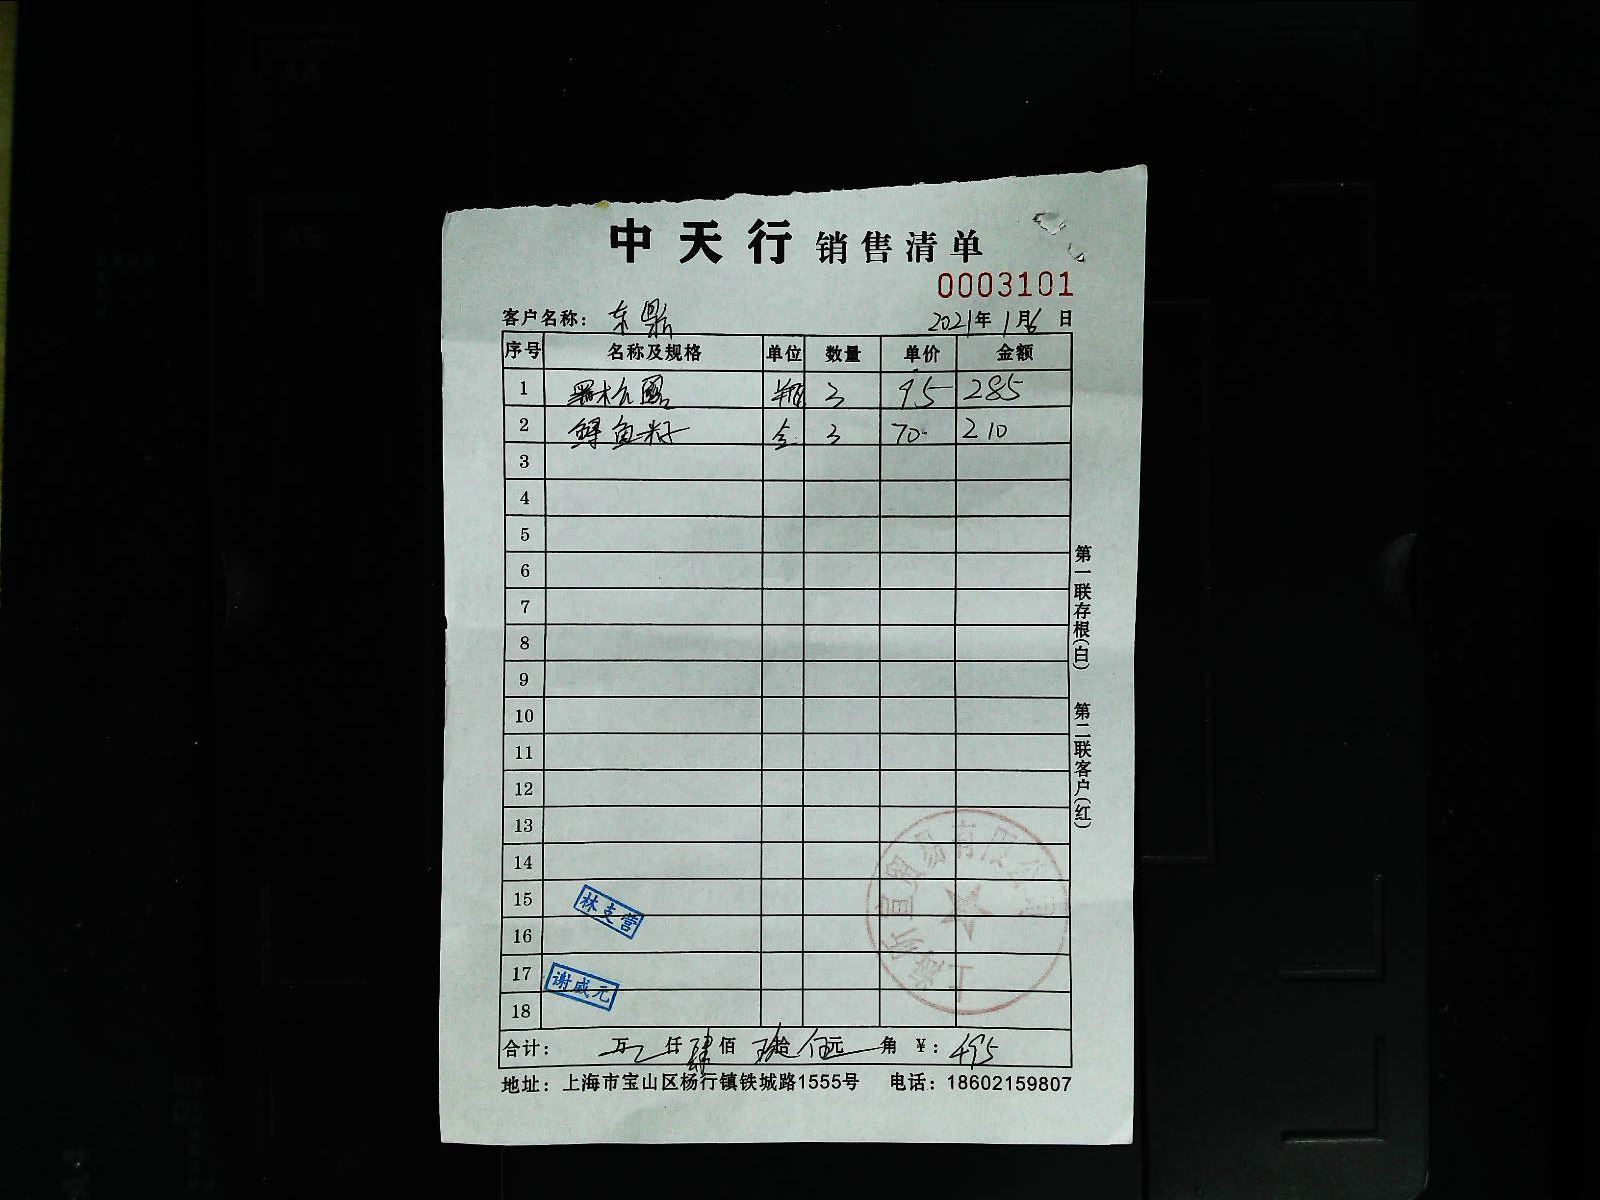 中天行 销售清单
0003101
客户名称: 东鼎 2021年1月6日
序号 名称及规格 单位 数量 单价 金额
1 黑松露 瓶 3 95 285
2 鲟鱼籽 盒 3 70 210
3
4
5
6
7
8
9
10
11
12
13
14
15
16
17
18
林支营
谢盛元
第一联存根(白) 第二联客户(红)
合计: 万 仟 肆佰 玖拾 伍元 角 ¥: 495
地址: 上海市宝山区杨行镇铁城路1555号 电话: 18602159807